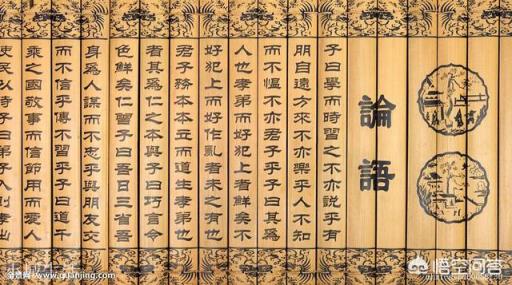 論語
子曰學而時習之不亦說乎有
朋自遠方來不亦樂乎人不知
而不慍不亦君子乎子曰其爲
人也孝弟而好犯上者鮮矣不
好犯上而好作亂者未之有也
君子務本本立而道生孝弟也
者其爲仁之本與子曰巧言令
色鮮矣仁曾子曰吾日三省吾
身爲人謀而不忠乎與朋友交
而不信乎傳不習乎子曰道千
乘之國敬事而信節用而愛人
使民以時子曰弟子入則孝出
全景网 www.quanjing.com
悟空问答